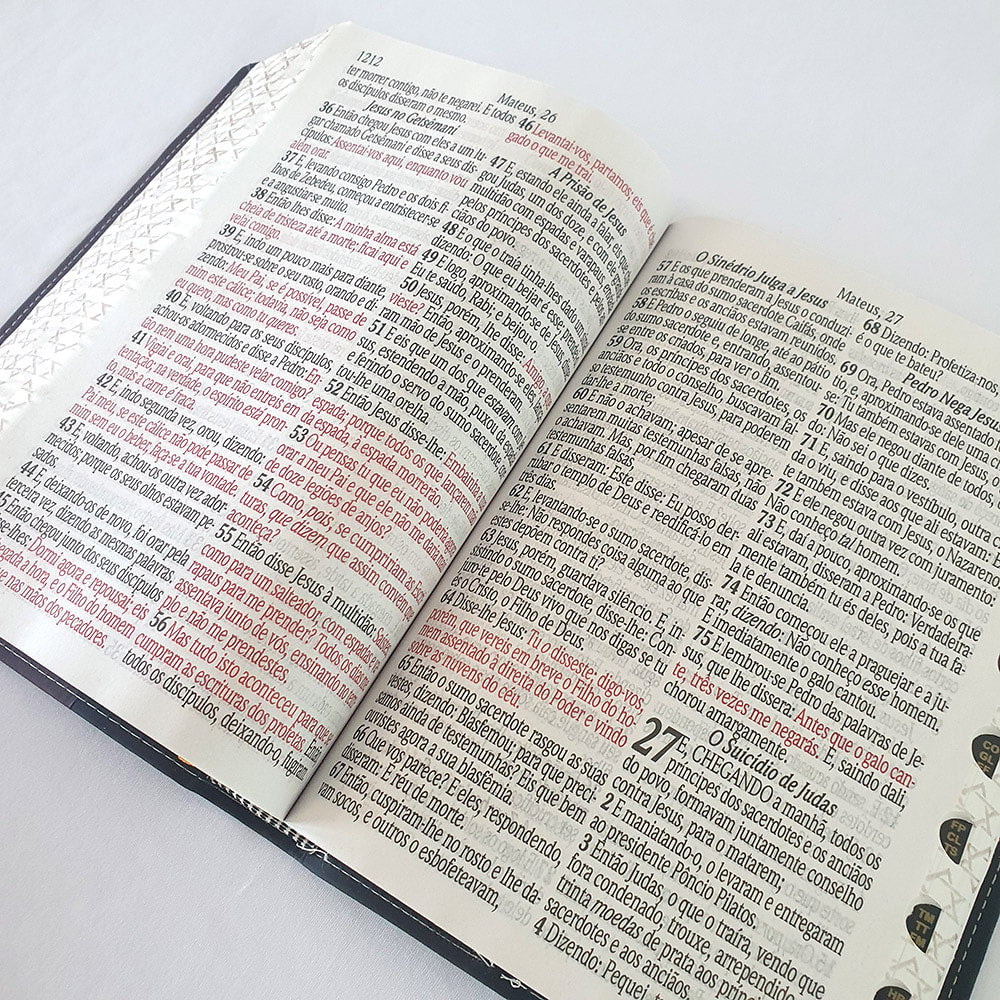 1212
Mateus, 26
ter morrer contigo, não te negarei. E todos
os discípulos disseram o mesmo.
Jesus no Getsêmani
36 Então chegou Jesus com eles a um lu-
gar chamado Getsêmani e disse a seus dis-
cípulos: Assentai-vos aqui, enquanto vou
além orar.
37 E, levando consigo Pedro e os dois fi-
lhos de Zebedeu, começou a entristecer-se
e a angustiar-se muito.
38 Então lhes disse: A minha alma está
cheia de tristeza até a morte; ficai aqui e
velai comigo.
39 E, indo um pouco mais para diante,
prostrou-se sobre o seu rosto, orando e di-
zendo: Meu Pai, se é possível, passe de
mim este cálice; todavia, não seja como
eu quero, mas como tu queres.
40 E, voltando para os seus discípulos,
achou-os adormecidos e disse a Pedro: En-
tão nem uma hora pudeste velar comigo?
41 Vigiai e orai, para que não entreis em
tentação; na verdade, o espírito está pron-
to, mas a carne é fraca.
42 E, indo segunda vez, orou, dizendo:
Pai meu, se este cálice não pode passar de
mim sem eu o beber, faça-se a tua vontade.
43 E, voltando, achou-os outra vez ador-
mecidos; porque os seus olhos estavam pe-
sados.
44 E, deixando-os de novo, foi orar pela
terceira vez, dizendo as mesmas palavras.
45 Então chegou junto dos seus discípulos
Dormi agora e repousai; eis
e a hora, e o Filho do homem
nas mãos dos pecadores.
46 Levantai-vos, partamos; eis que é
gado o que me trai.
A Prisão de Jesus
47 E, estando ele ainda a falar, eis
gou Judas, um dos doze, e com ele
multidão com espadas e varapaus,
pelos príncipes dos sacerdotes
ciãos do povo.
48 E o que o traía tinha-lhes dado um
dizendo: O que eu beijar é esse;
49 E logo, aproximando-se de Jesus,
Eu te saúdo, Rabi; e beijou-o.
50 Jesus, porém, lhe disse: Amigo,
vieste? Então, aproximando-se
ram mão de Jesus e o prenderam.
51 E eis que um dos que estavam
sus, estendendo a mão, puxou da
e, ferindo o servo do sumo sacerdote,
tou-lhe uma orelha.
52 Então Jesus disse-lhe: Embainha
espada; porque todos os que lançarem
da espada, à espada morrerão.
53 Ou pensas tu que eu não poderia
orar a meu Pai e que ele não me daria
de doze legiões de anjos?
54 Como, pois, se cumpririam as
turas, que dizem que assim convém
aconteça?
55 Então disse Jesus à multidão: Saístes,
como para um salteador, com espadas e
rapaus para me prender? Todo os dias
assentava junto de vós, ensinando no
plo e não me prendestes.
56 Mas tudo isto aconteceu para que
cumpram as escrituras dos profetas. Então
todos os discípulos, deixando-o, fugiram.
Mateus, 27
O Sinédrio Julga a Jesus
57 E os que prenderam a Jesus o conduzi-
ram à casa do sumo sacerdote Caifás, onde
os escribas e os anciãos estavam reunidos.
58 E Pedro o seguiu de longe, até ao pátio
do sumo sacerdote e, entrando, assentou-
se entre os criados, para ver o fim.
59 Ora, os príncipes dos sacerdotes, os
anciãos e todo o conselho, buscavam fal-
so testemunho contra Jesus, para poderem
dar-lhe a morte;
60 E não o achavam; apesar de se apre-
sentarem muitas testemunhas falsas, não
o achavam. Mas, por fim chegaram duas
testemunhas falsas,
61 E disseram: Este disse: Eu posso der-
rubar o templo de Deus e reedificá-lo em
três dias.
62 E, levantando-se o sumo sacerdote, dis-
se-lhe: Não respondes coisa alguma ao que
estes depõem contra ti?
63 Jesus, porém, guardava silêncio. E, in-
sistindo o sumo sacerdote, disse-lhe: Con-
juro-te pelo Deus vivo que nos digas se tu
és o Cristo, o Filho de Deus.
64 Disse-lhe Jesus: Tu o disseste; digo-vos,
porém, que vereis em breve o Filho do ho-
mem assentado à direita do Poder e vindo
sobre as nuvens do céu.
65 Então o sumo sacerdote rasgou as suas
vestes, dizendo: Blasfemou; para que preci-
samos ainda de testemunhas? Eis que bem
ouvistes agora a sua blasfêmia.
66 Que vos parece? E eles, respondendo,
disseram: É réu de morte.
67 Então, cuspiram-lhe no rosto e lhe da-
vam socos, e outros o esbofeteavam,
68 Dizendo: Profetiza-nos
é o que te bateu?
Pedro Nega Jesus
69 Ora, Pedro estava assentado
tio, e, aproximando-se dele uma
se: Tu também estavas com Jesus, o
70 Mas ele negou diante de todos,
do: Não sei o que dizes.
71 E, saindo para o vestíbulo, outra
da o viu, e disse aos que ali estavam:
te também estava com Jesus, o Nazareno.
72 E ele negou outra vez com juramento:
Não conheço tal homem.
73 E, daí a pouco, aproximando-se os que
ali estavam, disseram a Pedro: Verdadeira-
mente também tu és deles, pois a tua fa-
la te denuncia.
74 Então começou ele a praguejar e a ju-
rar, dizendo: Não conheço esse homem.
E imediatamente o galo cantou.
75 E lembrou-se Pedro das palavras de Je-
sus, que lhe dissera: Antes que o galo can-
te, três vezes me negarás. E, saindo dali,
chorou amargamente.
O Suicídio de Judas
27 E, CHEGANDO a manhã, todos os
príncipes dos sacerdotes e os anciãos
do povo, formavam juntamente conselho
contra Jesus, para o matarem;
2 E maniatando-o, o levaram e entregaram
ao presidente Pôncio Pilatos.
3 Então Judas, o que o traíra, vendo que
fora condenado, trouxe, arrependido,
trinta moedas de prata aos príncipes
sacerdotes e aos anciãos,
4 Dizendo: Pequei,
CO
GL
FP
CL
TS
TM
TT
FM